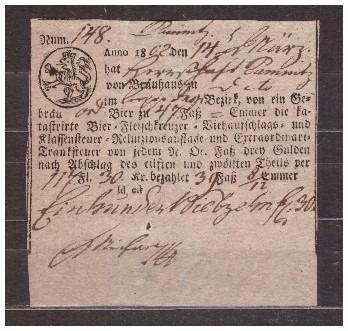 Num. 148.
Anno 1802 den 14 März.
hat Herrschaft
von Bräuhaus zu
im Bezirk, von ein Ge-
bräu Bier zu 47 Faß Emmer die ka-
tastrirte Bier- Fleischkreuzer- Viehaufschlags- und
Klassensteuer- Reluizionsauflage und Extraordinari-
Tranksteuer von jedem N. Oe. Faß drey Gulden
nach Abschlag des eilften und zwölften Theils per
117 Fl. 30 Kr. bezahlet 39 Faß Emmer
Einhundert Siebzehn fl. 30